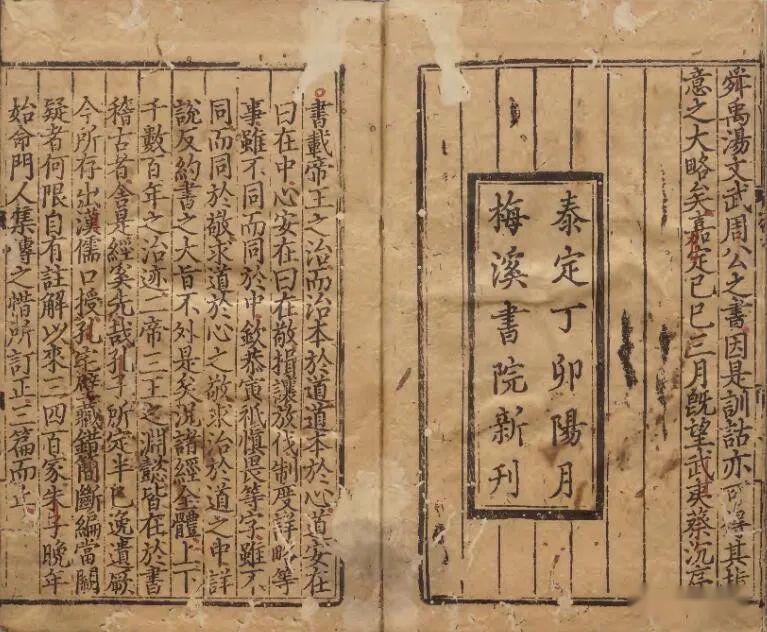 舜禹湯文武周公之書因是訓詁亦可得其指
意之大略矣嘉定己巳三月旣望武夷蔡沉序
泰定丁卯陽月
梅溪書院新刊
書載帝王之治而治本於道道本於心道安在
曰在中心安在曰在敬揖讓放伐制度詳略等
事雖不同而同於中欽恭寅祗慎畏等字雖不
同而同於敬求道於心之敬求治於道之中詳
說反約書之大旨不外是矣況諸經全體上下
千數百年之治迹二帝三王之淵懿皆在於書
稽古者舍是經奚先哉孔子所定半已逸遺厥
今所存出漢儒口授孔宅壁藏錯簡斷編當闕
疑者何限自有註解以來三四百家朱子晚年
始命門人集傳之惜所訂正三篇而止